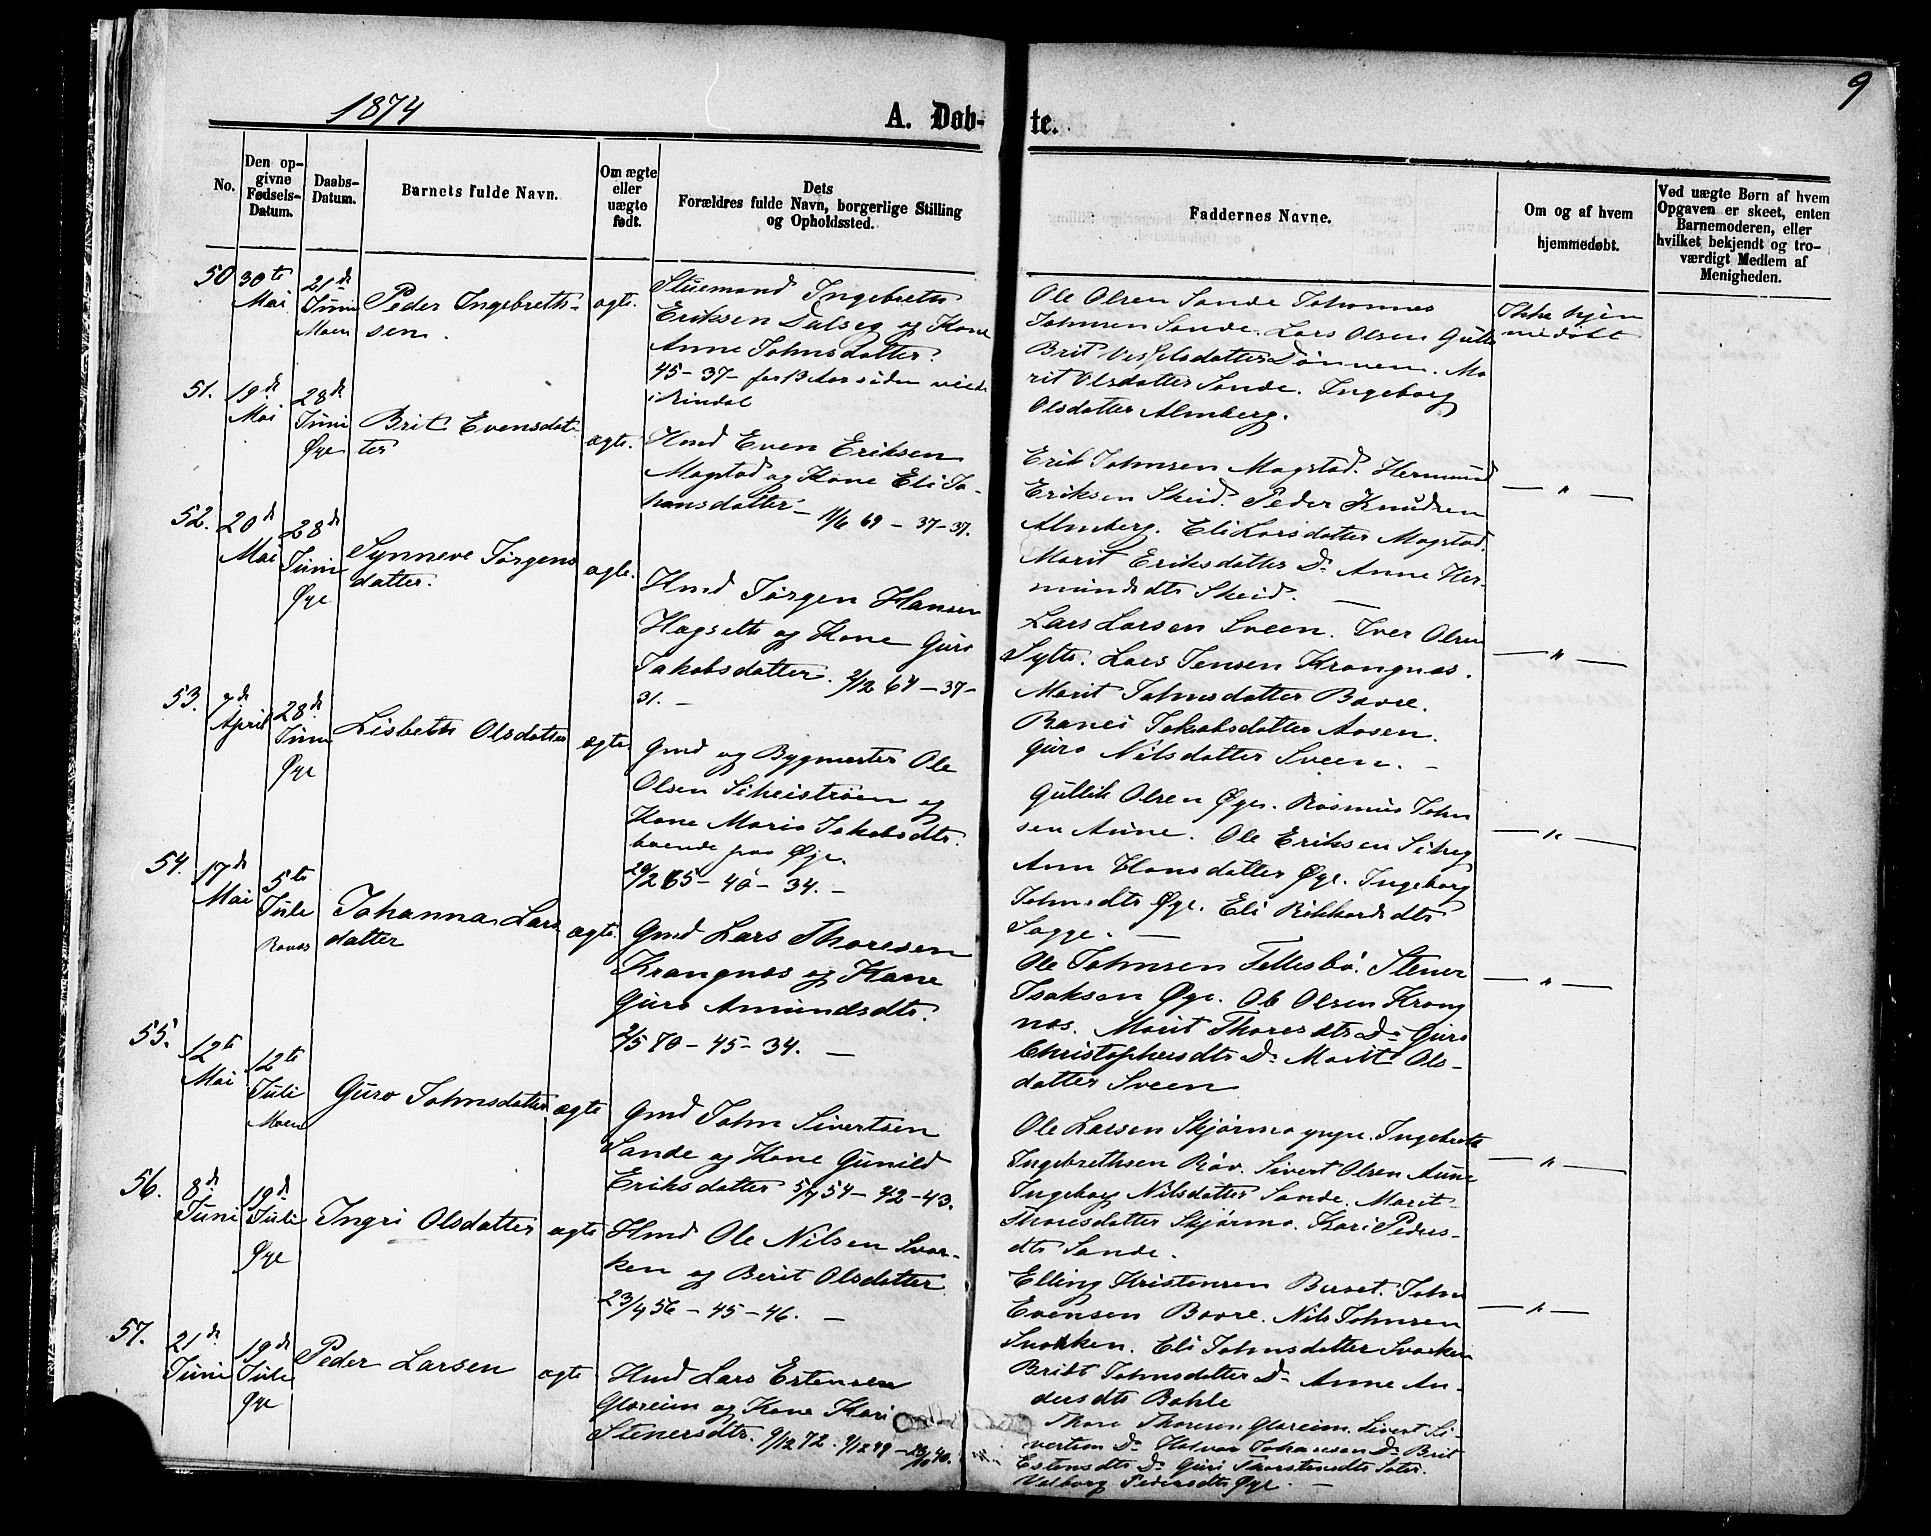 1874
9
A. Døb- te.
No.
Den op-
givne
Fødsels-
Datum.
Daabs-
Datum.
Barnets fulde Navn.
Om ægte
eller
uægte
født.
Dets
Forældres fulde Navn, borgerlige Stilling
og Opholdssted.
Faddernes Navne.
Om og af hvem
hjemmedøbt.
Ved uægte Børn af hvem
Opgaven er skeet, enten
Barnemoderen, eller
hvilket bekjendt og tro-
værdigt Medlem af
Menigheden.
50
30te
Mai
21de
Juni
Moen
Peder Ingebreth-
sen.
ægte.
Stuemand Ingebreth
Eriksen Dalseg og Kone
Anne Johnsdatter.
45-37- for 13 Aar siden viede
i Rindal
Ole Olsen Sande Johannes
Johnsen Sande. Lars Olsen
Brit Dønnem. Ma
rit Olsdatter Sande. Ingeborg
Olsdatter Almberg.
Ikke hjem
medøbt
51.
19de
Mai
28de
Juni
Øye
Brit Evensdat-
ter
ægte.
Hmd Even Eriksen
Magstad og Kone Eli Jo-
hansdatter - 11/6 69 - 37-37.
Erik Johnsen Magstad. Hermund
Eriksen Skeid. Peder Knudsen
Almberg. Eli Larsdatter Magstad.
Marit Eriksdatter Do Anne Her-
mundsdtr Skeid. —
— " —
52.
20de
Mai
28de
Juni
Øye
Synneve Jørgens
datter.
ægte.
Hmd Jørgen Hansen
Hagseth og Kone Guro
Jakobsdatter. 2/12 64 - 37-
31. —
Lars Larsen Sveen. Iver Olsen
Sylte. Lars Jensen Krangnæs.
Marit Johnsdatter Bævre.
Ranei Jakobsdatter Aasen.
Guro Nilsdatter Sveen. —
— " —
53.
7de
April
28de
Juni
Øye
Lisbeth Olsdatter
ægte
Gmd og Bygmester Ole
Olsen og
Kone Marit Jakobsdtr.
boende paa Øye.
29/2 65 - 40 - 34. —
Gullik Olsen Øye. Rasmus John
sen Aune. Ole Eriksen
Ann Hansdatter Øye. Ingeborg
Johnsdtr Øye. Eli Rikkardsdtr
Sogge. —
— " —
54.
17de
Mai
5te
Juli
Johanna Lars
datter
ægte
Gmd Lars Thoresen
Krangnæs og Kone
Guro Amundsdtr.
2/5 70 - 45 - 34. —
Ole Johnsen Fellesbø. Stener
Isaksen Øye. Ole Olsen Krang
næs. Marit Thoresdtr Do Guro
Christophersdtr Do Marit Ols-
datter Sveen
— " —
55.
12te
Mai
12te
Juli
Moen
Guro Johnsdatter
ægte
Gmd John Sivertsen
Sande og Kone Gunild
Eriksdatter 5/7 54 - 42-43.
Ole Larsen Skjærmo yngre. Ingebreth
Ingebrethsen Røv. Sivert Olsen Aune
Ingeborg Nilsdatter Sande. Marit
Thoresdatter Skjærmo. Kari Peders-
dtr Sande.
— " —
56.
8de
Juni
19de
Juli
Øye
Ingri Olsdatter
ægte
Hmd Ole Nilsen Svar-
ken og Berit Olsdatter
23/4 56 - 45 - 46. —
Elling Kristensen Buset. John
Evensen Bævre. Nils Johnsen
Svarken. Eli Johnsdatter Svarken
Bridt Johnsdatter Do Anne An-
dersdtr Bahle
— " —
57.
21de
Juni
19de
Juli
Øye
Peder Larsen
ægte
Hmd Lars Estensen
Glæreim og Kone Kari
Stenersdtr. 9/12 72.
Thore Thoresen Glæreim. Sivert Si-
vertsen Do Halvor Johansen Do Brit
Estensdtr Do Guri Thorstensdtr Sæter.
Valborg Pedersdtr Øye. —